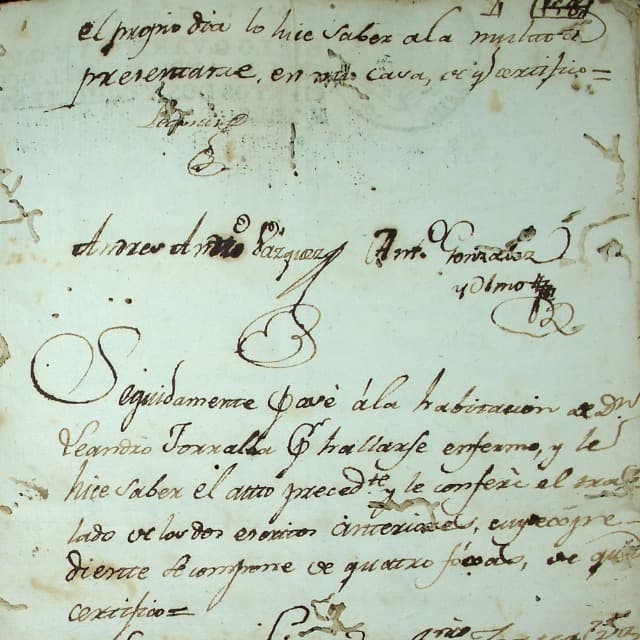 el propio dia lo hice saber a la mulata
presentante, en mi casa, de q̃ certifico=
Andres Anto Vazquez Anto Gonzalez
y Olmo
Seguidamente pasè à la habitacion de Dn
Leandro Torralla Pr hallarse enfermo, y le
hice saber el auto precedte y le conferì el tras
lado de los dos escritos anteriores, cuyo expe
diente se compone de quatro foxas, de qe
certifico=